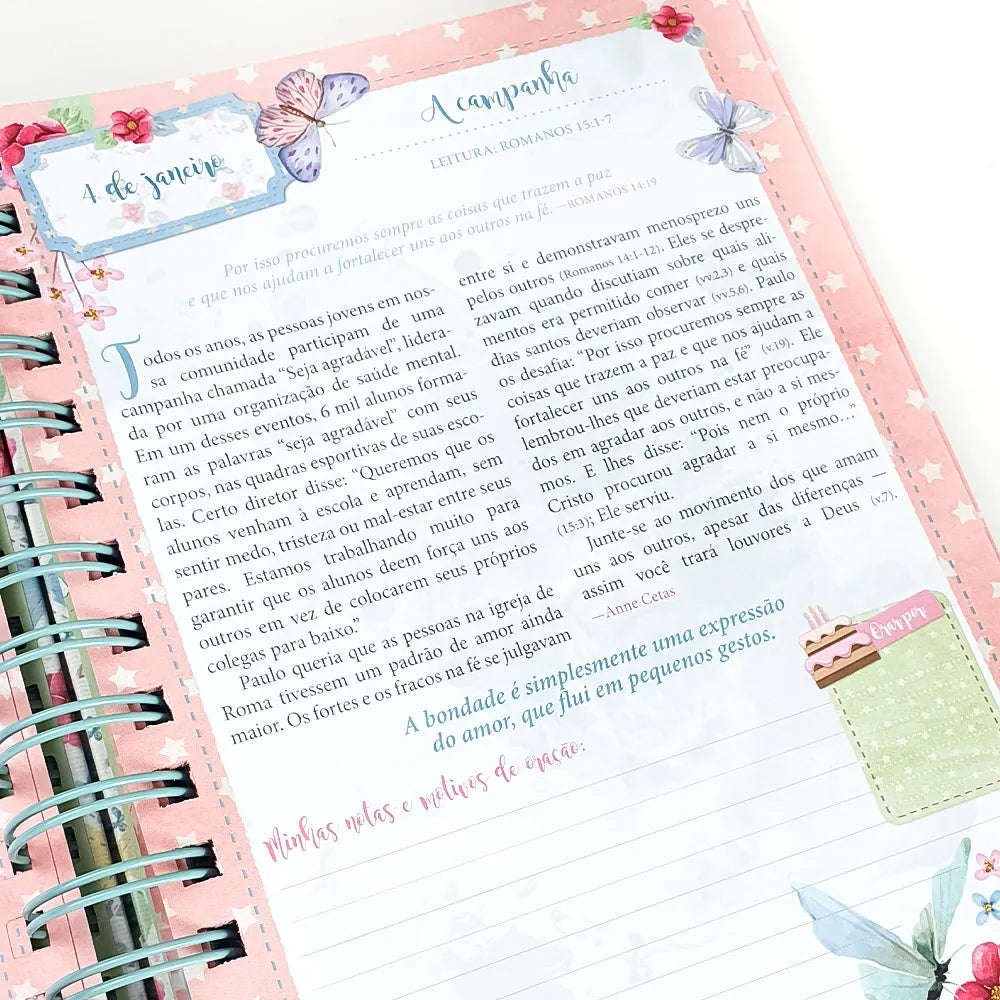 4 de janeiro
A campanha
LEITURA: ROMANOS 15:1-7
Por isso procuremos sempre as coisas que trazem a paz
e que nos ajudam a fortalecer uns aos outros na fé. —ROMANOS 14:19
Todos os anos, as pessoas jovens em nos-
sa comunidade participam de uma
campanha chamada “Seja agradável”, lidera-
da por uma organização de saúde mental.
Em um desses eventos, 6 mil alunos forma-
ram as palavras “seja agradável” com seus
corpos, nas quadras esportivas de suas esco-
las. Certo diretor disse: “Queremos que os
alunos venham à escola e aprendam, sem
sentir medo, tristeza ou mal-estar entre seus
pares. Estamos trabalhando muito para
garantir que os alunos deem força uns aos
outros em vez de colocarem seus próprios
colegas para baixo.”
Paulo queria que as pessoas na igreja de
Roma tivessem um padrão de amor ainda
maior. Os fortes e os fracos na fé se julgavam
entre si e demonstravam menosprezo uns
pelos outros (Romanos 14:1-12). Eles se despre-
zavam quando discutiam sobre quais ali-
mentos era permitido comer (vv.2,3) e quais
dias santos deveriam observar (vv.5,6). Paulo
os desafia: “Por isso procuremos sempre as
coisas que trazem a paz e que nos ajudam a
fortalecer uns aos outros na fé” (v.19). Ele
lembrou-lhes que deveriam estar preocupa-
dos em agradar aos outros, e não a si mes-
mos. E lhes disse: “Pois nem o próprio
Cristo procurou agradar a si mesmo…”
(15:3); Ele serviu.
Junte-se ao movimento dos que amam
uns aos outros, apesar das diferenças —
assim você trará louvores a Deus (v.7).
—Anne Cetas
A bondade é simplesmente uma expressão
do amor, que flui em pequenos gestos.
Orar por
Minhas notas e motivos de oração: